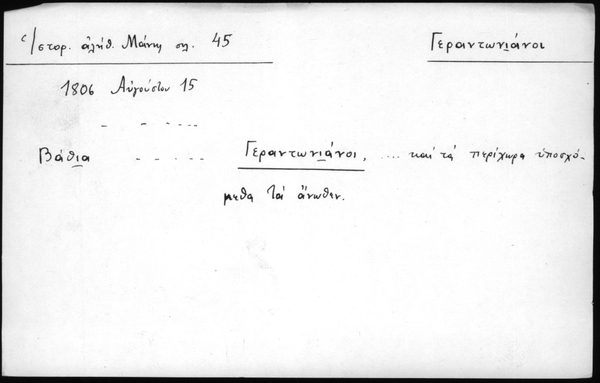 Ἱστορ. ἀλήθ. Μάνης σελ. 45
Γεραντωνιάνοι
1806 Αὐγούστου 15
- - - ...
Βάθια - - - - .. Γεραντωνιάνοι, .... καί τά περίχωρα ὑποσχό-
μεθα τά ἄνωθεν.